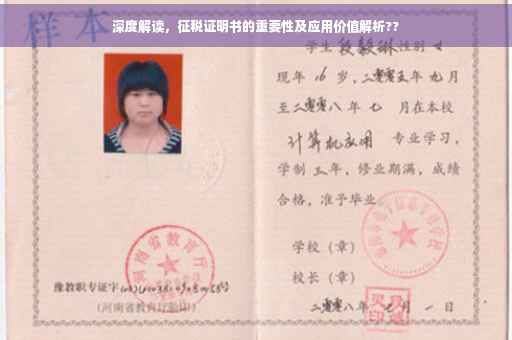 深度解读，征税证明书的重要性及应用价值解析??
样本
学生段毅琳性别女
现年16岁，二零零五年九月
至二零零八年七月在本校
计算机应用 专业学习，
学制三年，修业期满，成绩
合格，准予毕业。
学校（章）
校长（章）
河南省教育厅
豫教职专证字
（河南省教育厅验印）
二零零八年七月一日